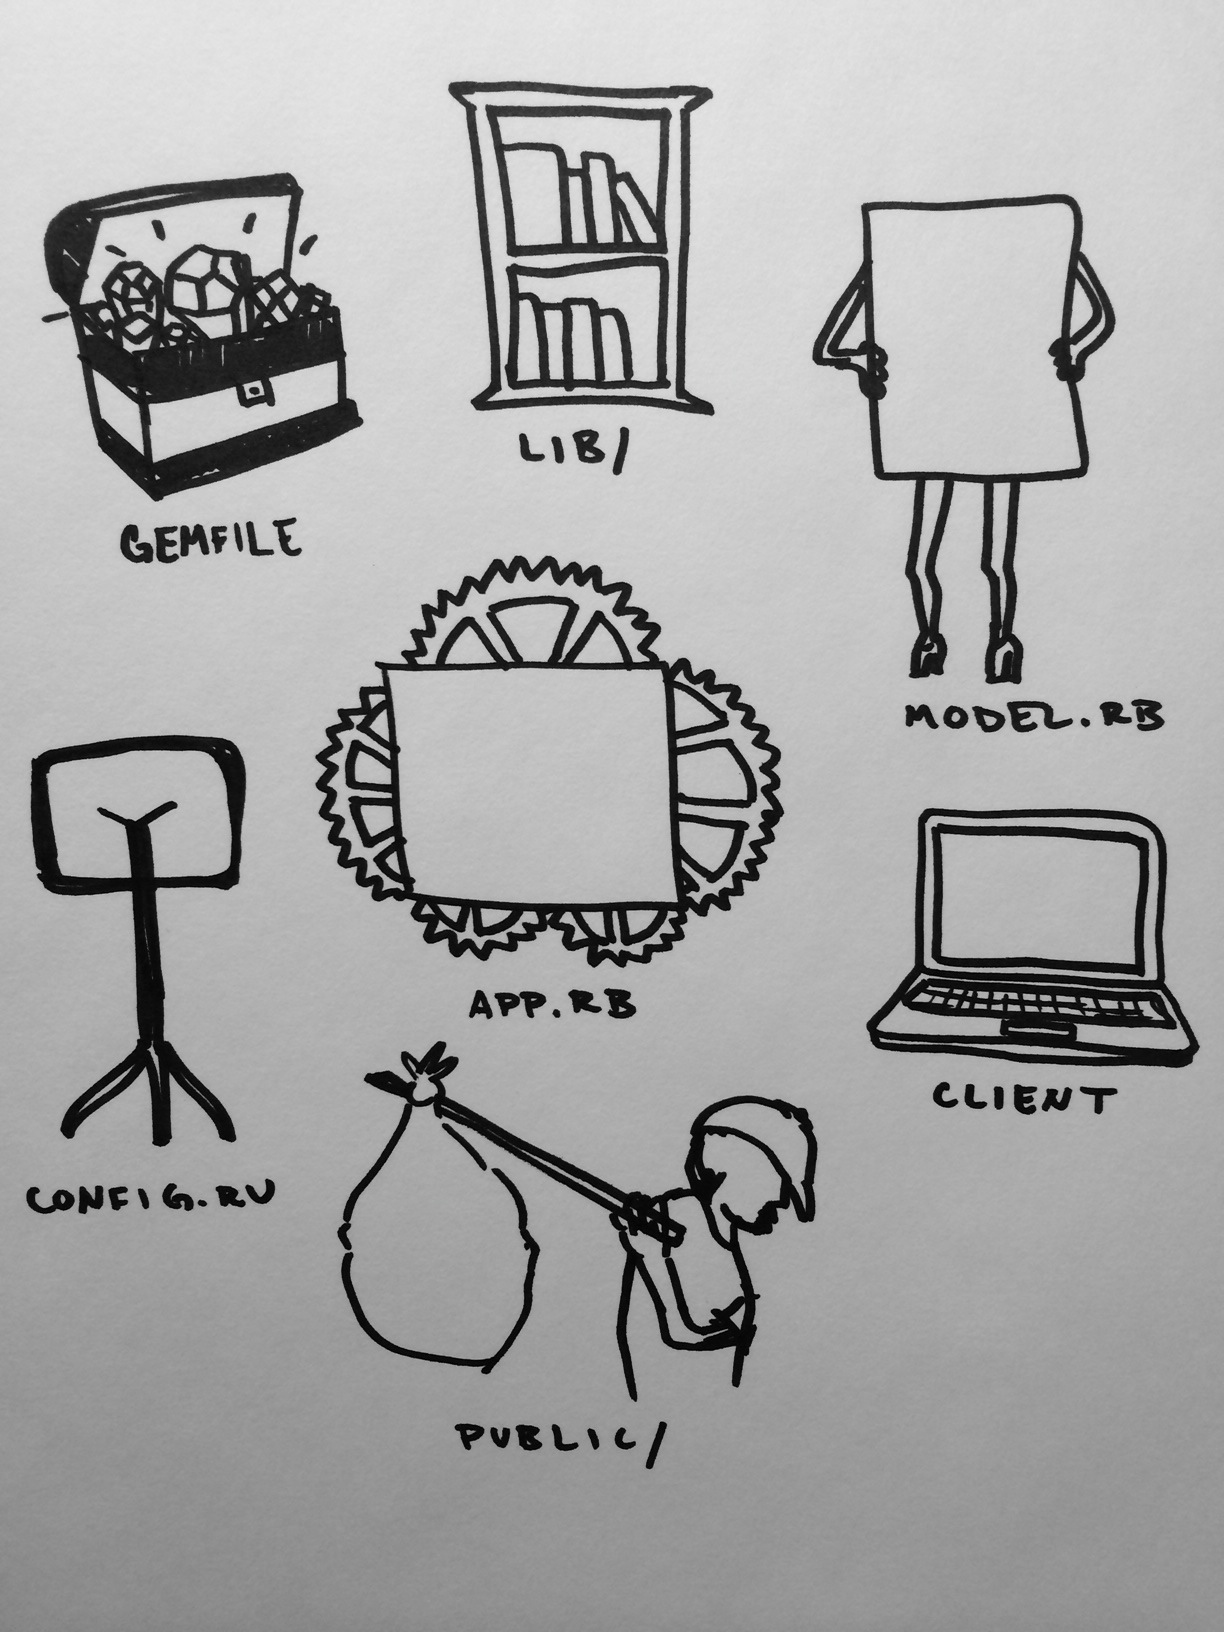 LIB/
GEMFILE
MODEL.RB
APP.RB
CLIENT
CONFIG.RU
PUBLIC/